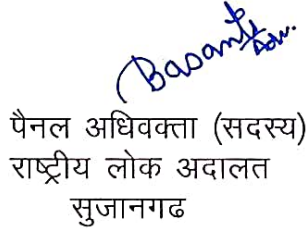 Basant
Adv.
पैनल अधिवक्ता (सदस्य)
राष्ट्रीय लोक अदालत
सुजानगढ